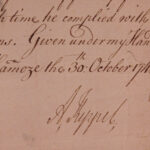 time he complied with
Given under my Hand
amoze the 30th October 174
A. Keppel